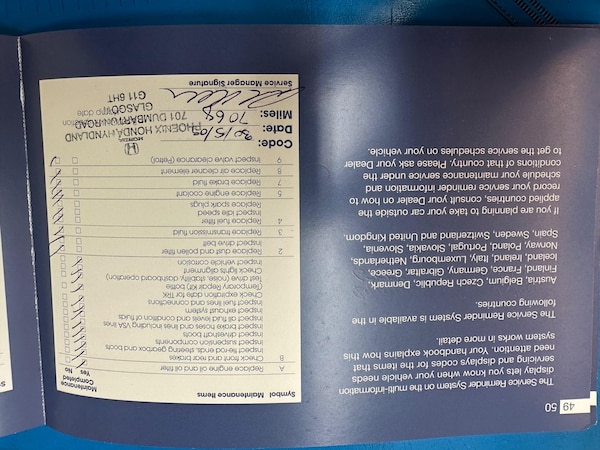 49 50
The Service Reminder System on the multi-information
display lets you know when your vehicle needs
servicing and displays codes for the items that
need attention. Your handbook explains how this
system works in more detail.
The Service Reminder System is available in the
following countries.
Austria, Belgium, Czech Republic, Denmark,
Finland, France, Germany, Gibraltar, Greece,
Iceland, Ireland, Italy, Luxembourg, Netherlands,
Norway, Poland, Portugal, Slovakia, Slovenia,
Spain, Sweden, Switzerland and United Kingdom.
If you are planning to take your car outside the
applied countries, consult your Dealer on how to
record your service reminder information and
schedule your maintenance service under the
conditions of that country. Please ask your Dealer
to get the service schedules on your vehicle.
Symbol Maintenance Items
Maintenance
Completed
Yes No
A Replace engine oil and oil filter
B Check front and rear brakes
Inspect tie-rod ends, steering gearbox and boots
Inspect suspension components
Inspect driveshaft boots
Inspect brake hoses and lines including VSA lines
Inspect all fluid levels and condition of fluids
Inspect exhaust system
Inspect fuel lines and connections
Check expiration date for TRK
(Temporary Repair Kit) bottle
Test drive (noise, stability, dashboard operation)
Check lights alignment
Inspect vehicle corrosion
2 Replace dust and pollen filter
Inspect drive belt
3 Replace transmission fluid
4 Replace fuel filter
Inspect idle speed
Replace spark plugs
5 Replace engine coolant
7 Replace brake fluid
8 Replace air cleaner element
9 Inspect valve clearance (Petrol)
Code:
HONDA
Date:
PHOENIX HONDA HYNDLAND
701 DUMBARTON ROAD
Miles: 7068
GLASGOW
G11 6HT
Service Manager Signature